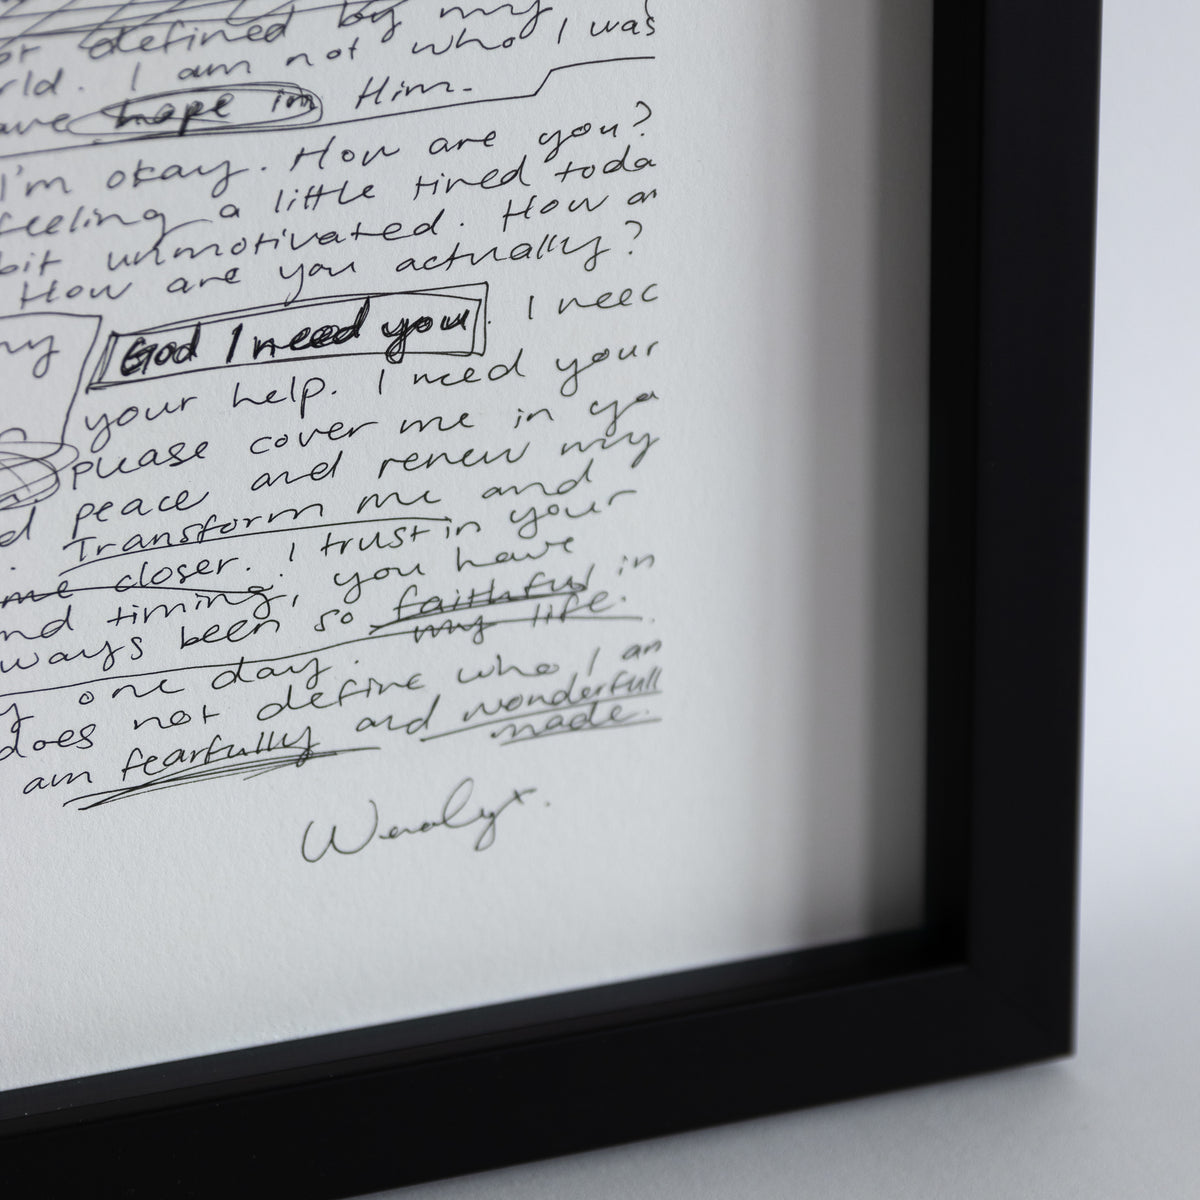 or defined by my
rld. I am not who I was
ave hope in Him.
I'm okay. How are you?
feeling a little tired toda
bit unmotivated. How a
How are you actually?
ny God I need you. I need
your help. I need your
please cover me in yo
peace and renew my
d Transform me and
me closer. I trust in your
nd timing, you have
ways been so faithful in
my life.
y one day.
does not define who I am
am fearfully and wonderfull
made.
Wendy x.